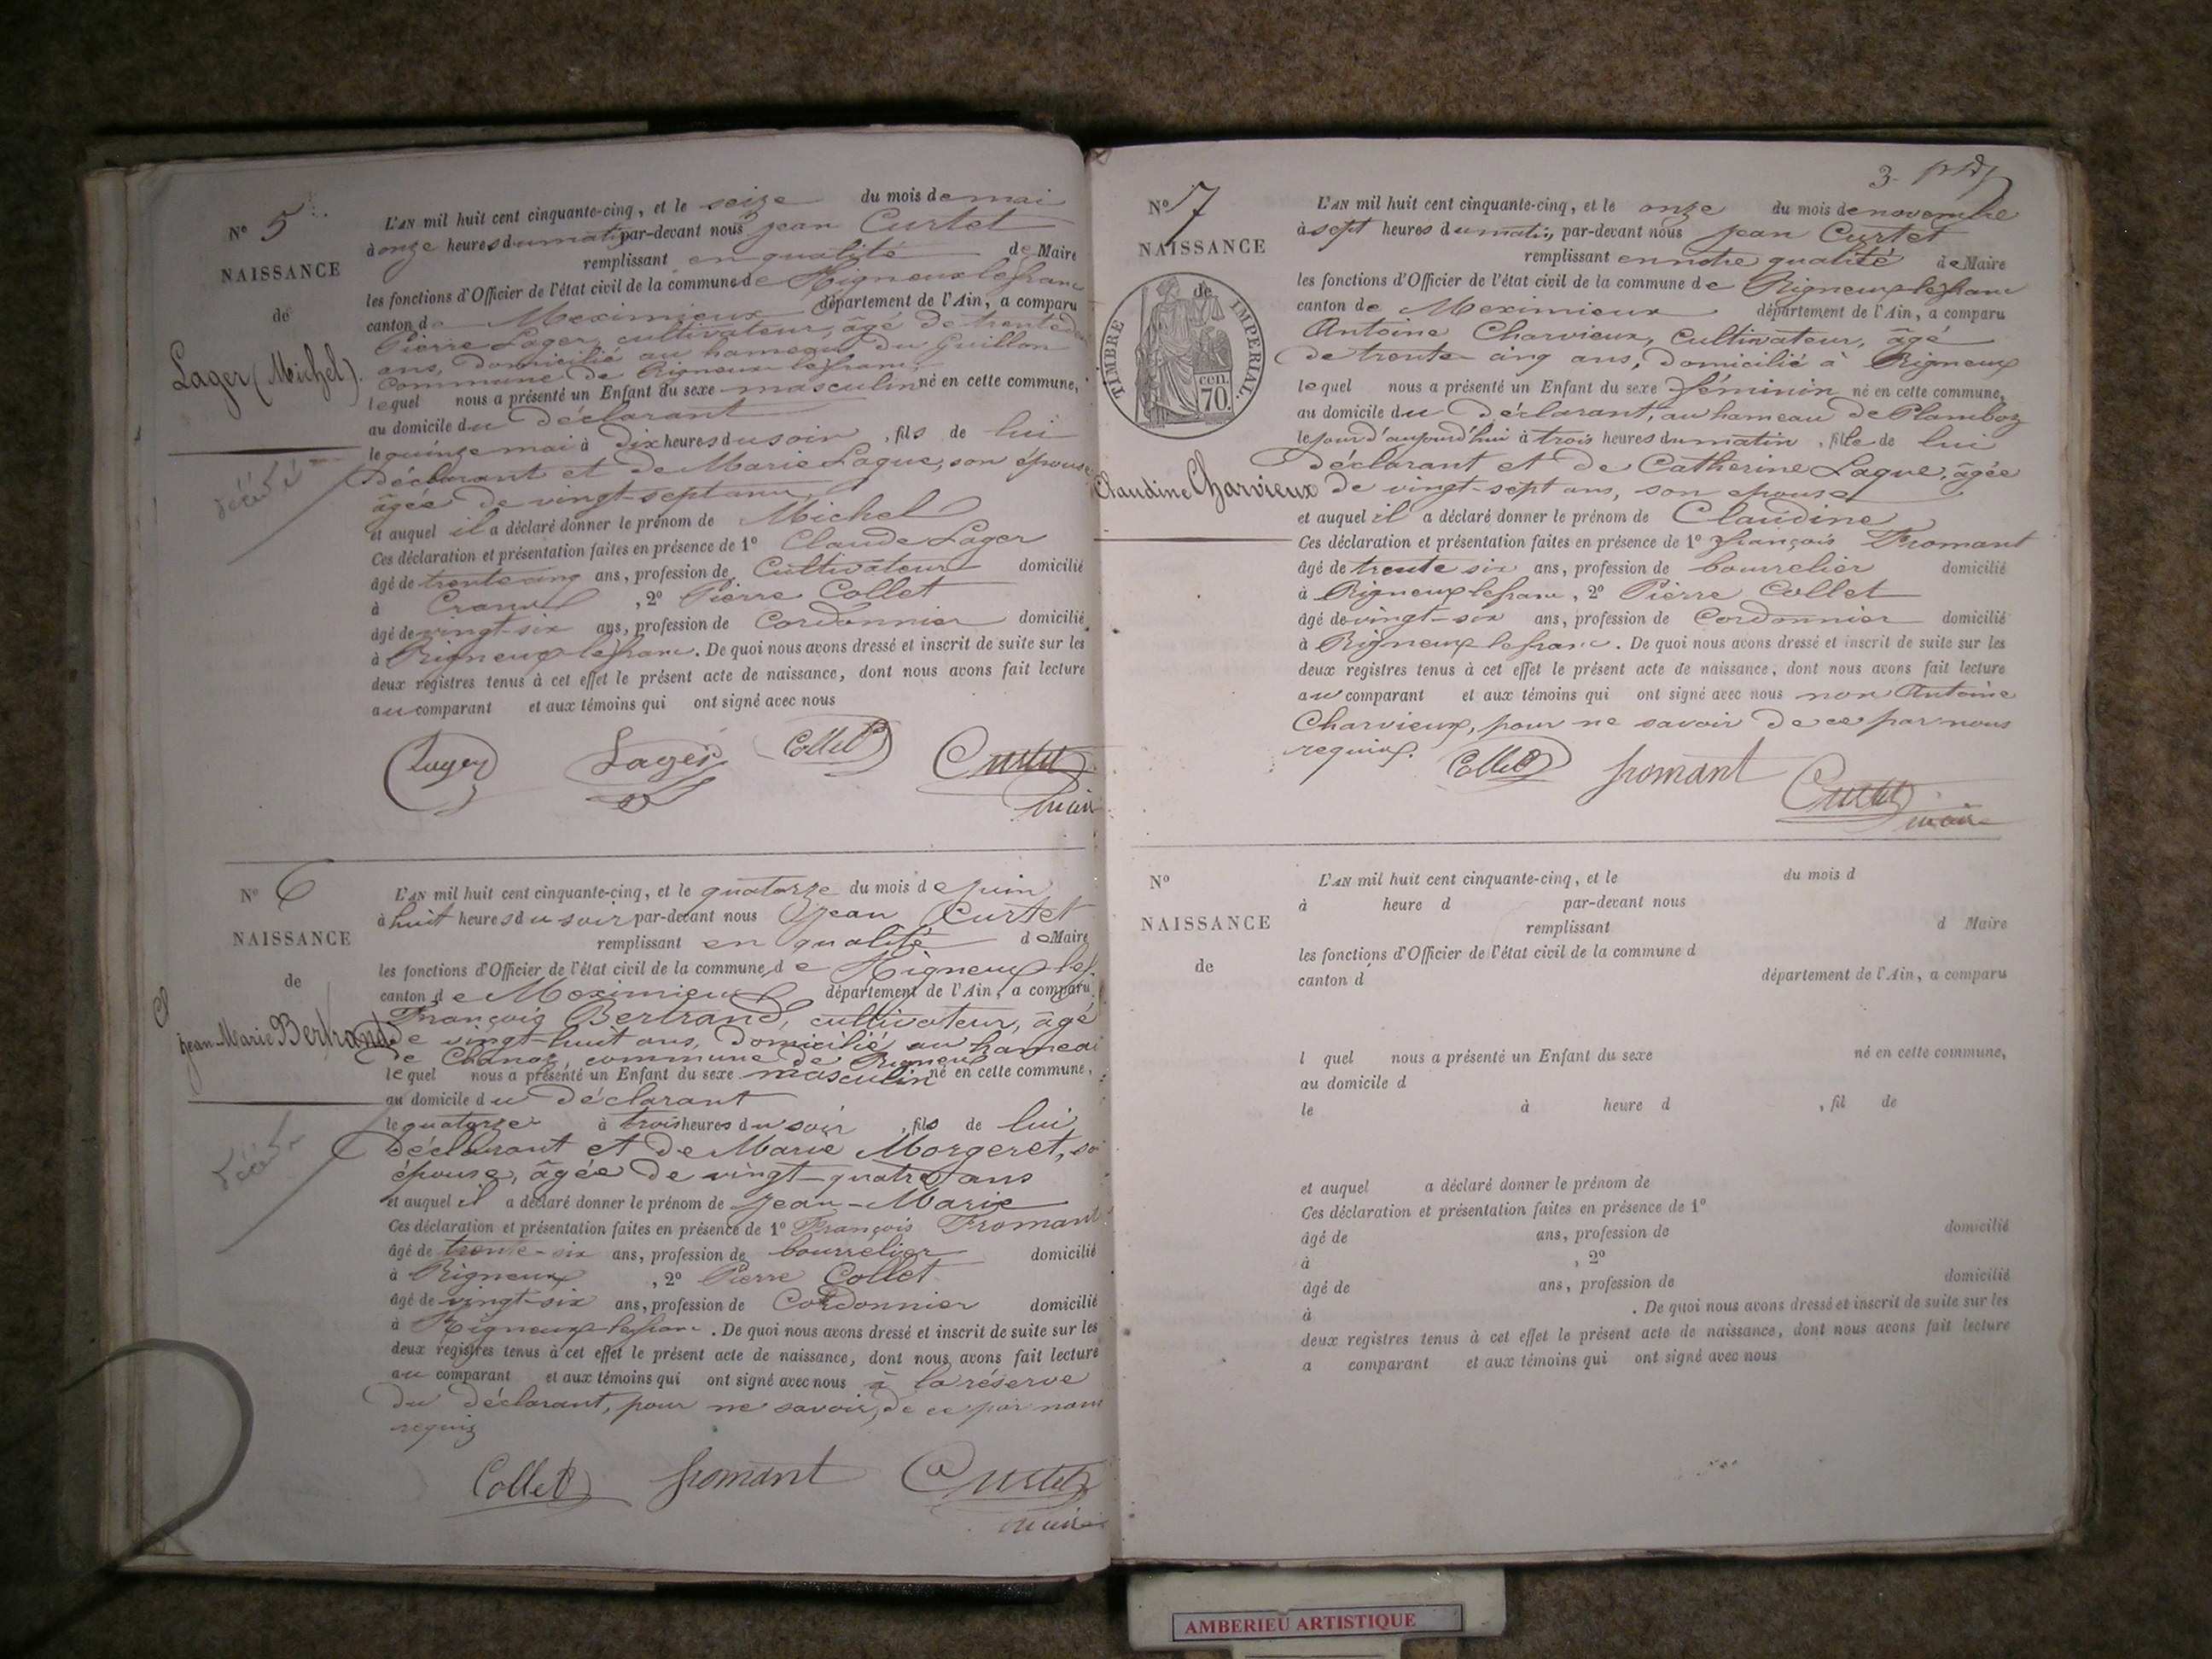 N° 5
NAISSANCE
de
Lager (Michel).
décédé
L'AN mil huit cent cinquante-cinq, et le seize du mois de mai
à onze heures du matin par-devant nous Jean Curtet
remplissant en qualité de Maire
les fonctions d'Officier de l'état civil de la commune de Rigneux le franc
canton de Meximieux département de l'Ain, a comparu
Pierre Lager, cultivateur, âgé de trente deux
ans, domicilié au hameau du Guillon
Commune de Rigneux le franc,
lequel nous a présenté un Enfant du sexe masculin né en cette commune,
au domicile du déclarant
le quinze mai à dix heures du soir, fils de lui
déclarant et de Marie Laque, son épouse
âgée de vingt-sept ans,
et auquel il a déclaré donner le prénom de Michel
Ces déclaration et présentation faites en présence de 1° Claude Lager
âgé de trente cinq ans, profession de Cultivateur domicilié
à Crans, 2° Pierre Collet
âgé de vingt-six ans, profession de Cordonnier domicilié
à Rigneux le franc. De quoi nous avons dressé et inscrit de suite sur les
deux registres tenus à cet effet le présent acte de naissance, dont nous avons fait lecture
au comparant et aux témoins qui ont signé avec nous
Lager Lager Collet Curtet
maire
N° 6
NAISSANCE
de
Jean-Marie Bertrand
décédé
L'AN mil huit cent cinquante-cinq, et le quatorze du mois de juin
à huit heures du soir par-devant nous Jean Curtet
remplissant en qualité de Maire
les fonctions d'Officier de l'état civil de la commune de Rigneux le f.
canton de Meximieux département de l'Ain, a comparu
François Bertrand, cultivateur, âgé
de vingt-huit ans, domicilié au hameau
de Chanoz, commune de Rigneux
lequel nous a présenté un Enfant du sexe masculin né en cette commune,
au domicile du déclarant
le quatorze à trois heures du soir, fils de lui
déclarant et de Marie Morgeret, so
épouse, âgée de vingt-quatre ans
et auquel il a déclaré donner le prénom de Jean-Marie
Ces déclaration et présentation faites en présence de 1° François Fromant
âgé de trente-six ans, profession de bourrelier domicilié
à Rigneux, 2° Pierre Collet
âgé de vingt-six ans, profession de Cordonnier domicilié
à Rigneux le franc. De quoi nous avons dressé et inscrit de suite sur les
deux registres tenus à cet effet le présent acte de naissance, dont nous avons fait lecture
au comparant et aux témoins qui ont signé avec nous à la réserve
du déclarant, pour ne savoir, de ce par nous
requis
Collet fromant Curtet
maire
3.
N° 7
NAISSANCE
de
TIMBRE IMPERIAL.
cen.
70.
Claudine Charvieux
L'AN mil huit cent cinquante-cinq, et le onze du mois de novembre
à sept heures du matin, par-devant nous Jean Curtet
remplissant en notre qualité de Maire
les fonctions d'Officier de l'état civil de la commune de Rigneux le franc
canton de Meximieux département de l'Ain, a comparu
Antoine Charvieux, Cultivateur, âgé
de trente cinq ans, domicilié à Rigneux
lequel nous a présenté un Enfant du sexe féminin né en cette commune,
au domicile du déclarant, au hameau de Plamboz
le jour d'aujourd'hui à trois heures du matin, fille de lui
déclarant et de Catherine Laque, âgée
de vingt-sept ans, son épouse
et auquel il a déclaré donner le prénom de Claudine
Ces déclaration et présentation faites en présence de 1° françois Fromant
âgé de trente six ans, profession de bourrelier domicilié
à Rigneux le franc, 2° Pierre Collet
âgé de vingt-six ans, profession de Cordonnier domicilié
à Rigneux le franc. De quoi nous avons dressé et inscrit de suite sur les
deux registres tenus à cet effet le présent acte de naissance, dont nous avons fait lecture
au comparant et aux témoins qui ont signé avec nous non Antoine
Charvieux, pour ne savoir de ce par nous
requis.
Collet fromant Curtet
maire
N°
NAISSANCE
de
L'AN mil huit cent cinquante-cinq, et le du mois d
à heure d par-devant nous
remplissant d Maire
les fonctions d'Officier de l'état civil de la commune d
canton d département de l'Ain, a comparu
l quel nous a présenté un Enfant du sexe né en cette commune,
au domicile d
le à heure d , fil de
et auquel a déclaré donner le prénom de
Ces déclaration et présentation faites en présence de 1°
âgé de ans, profession de domicilié
à , 2°
âgé de ans, profession de domicilié
à . De quoi nous avons dressé et inscrit de suite sur les
deux registres tenus à cet effet le présent acte de naissance, dont nous avons fait lecture
a comparant et aux témoins qui ont signé avec nous
AMBERIEU ARTISTIQUE